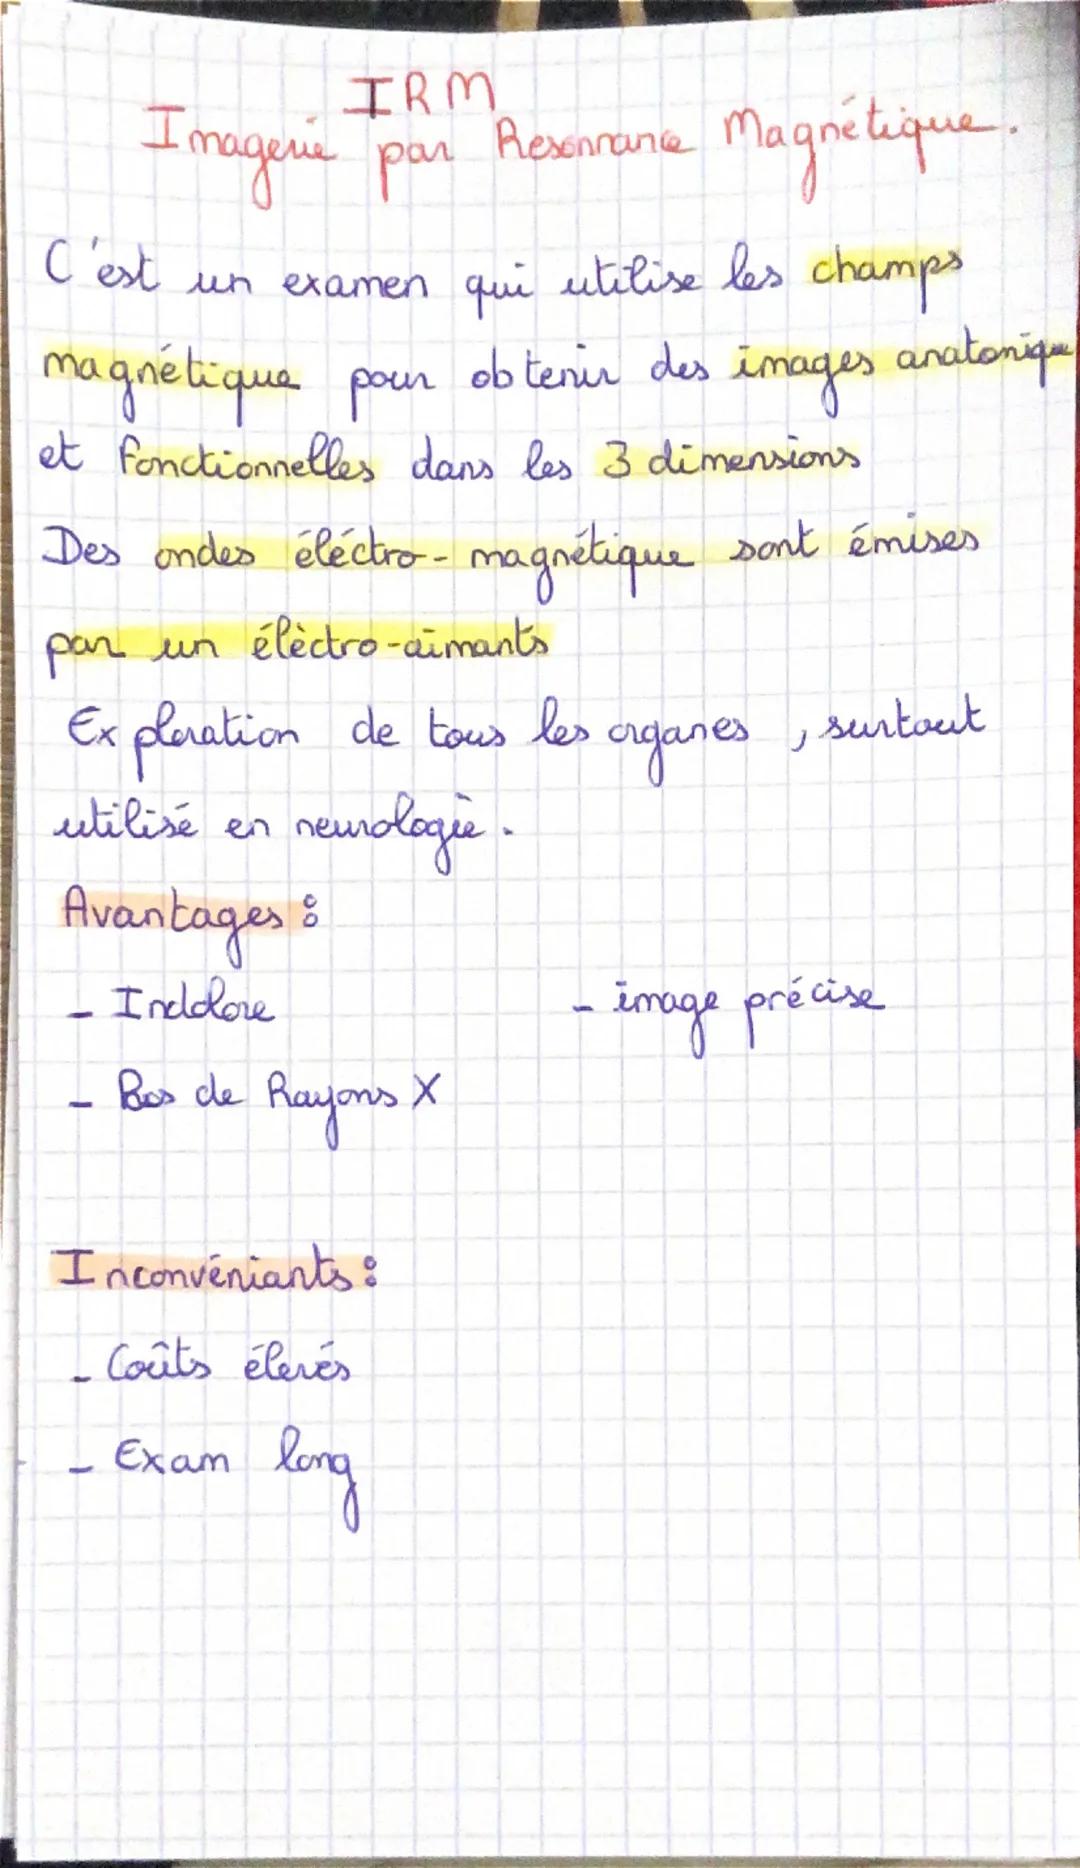 IRM
Imagerie par Resonnance Magnétique.
C'est un examen qui utilise les champs
magnétique pour obtenir des images anatomique
et fonctionnelles dans les 3 dimensions
Des ondes éléctro-magnétique sont émises
par un éléctro-aimants
Exploration de tous les organes, surtout
utilisé en neurologie.
Avantages :
- Indolore - image précise
- Pas de Rayons X
Inconvéniants :
- Coûts élevés
- Exam long